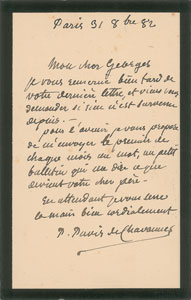 Paris 31 8bre 82
Mon cher Georges
je vous remercie bien tard de
votre dernière lettre et viens vous
demander si rien n'est survenu
depuis.
pour l'avenir je vous propose
de m'envoyer le premier de
chaque mois un mot, un petit
bulletin qui me dise ce que
devient votre cher père.
En attendant je vous serre
la main bien cordialement
P. Puvis de Chavannes